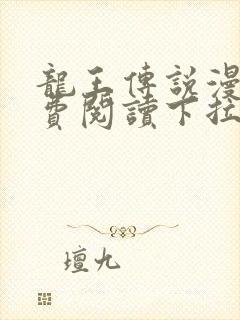 龍王傳說漫
費閱讀下拉
壇九